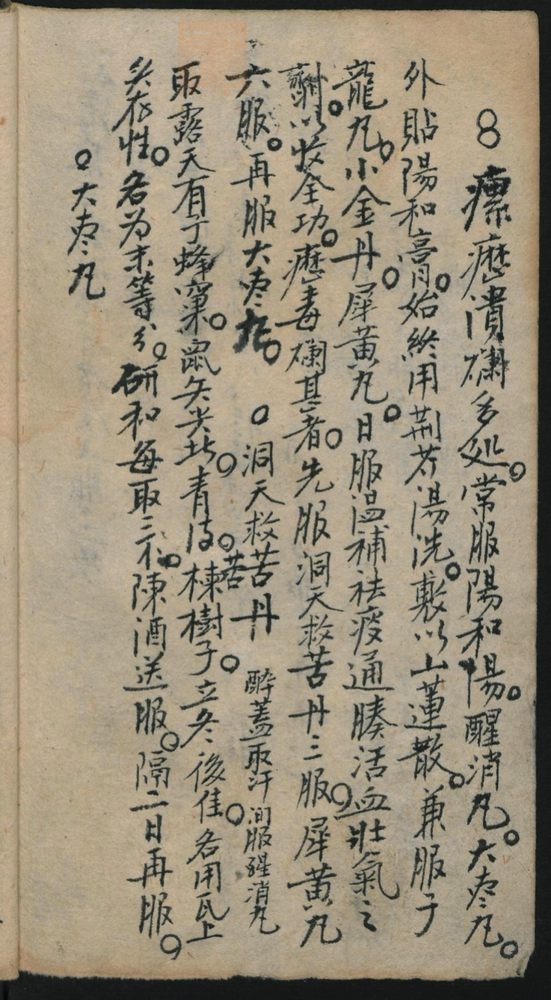 8 瘰癧潰爛多处。常服陽和湯。醒消丸。大枣丸。
外貼陽和膏。始終用荆芥湯洗。敷以山蓮散。兼服子
龍丸。小金丹。犀黄丸。日服温補祛痰通腠活血壯氣之
劑。以收全功。癧毒爛甚者。先服洞天救苦丹三服。犀黄丸
六服。再服大枣丸。
○洞天救苦丹 醉蓋取汗间服醒消丸
取露天有子蜂窠。鼠矢尖者。青皮。苦楝樹子。立冬後佳。各用瓦上
炙存性。各为末等分。研和每取三不。陳酒送服。隔二日再服。
○大枣丸